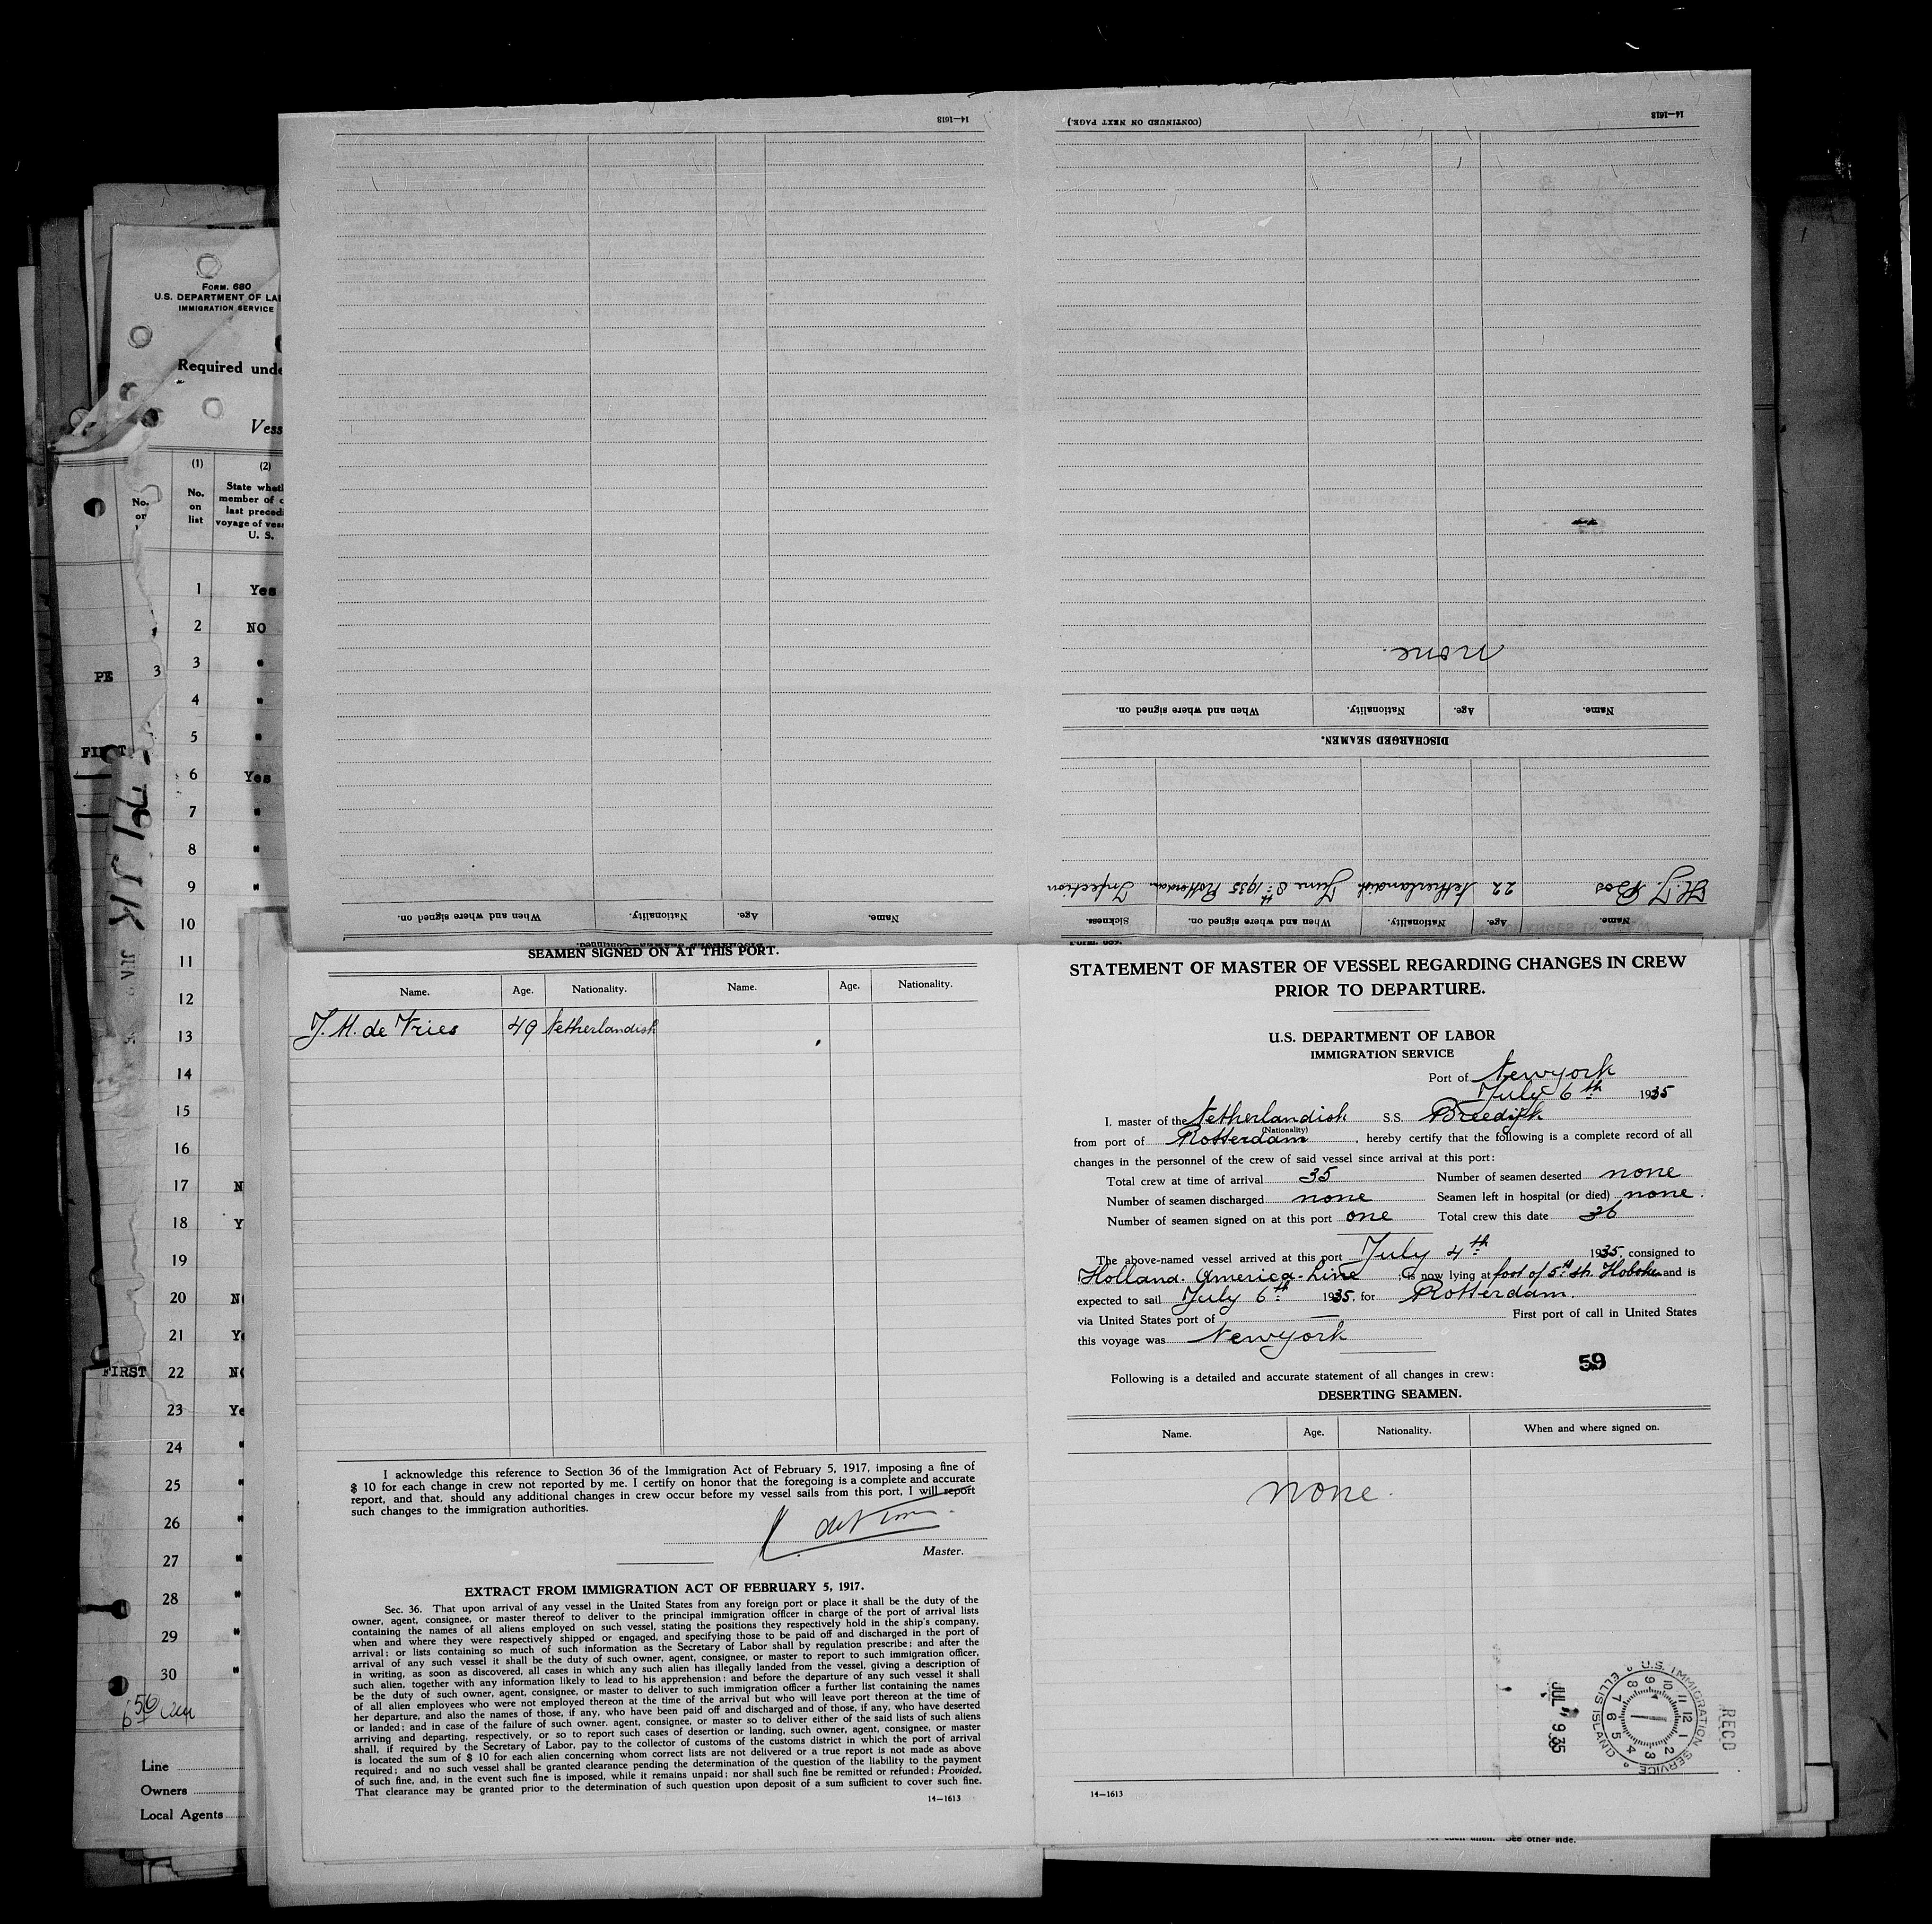 14—1618
(CONTINUED ON NEXT PAGE.)
14—1618
none.
Name. Age. Nationality. When and where signed on.
DISCHARGED SEAMEN.
H. J. Bos 22 Netherlandish June 8th 1935 Rotterdam Infection
Name. Age. Nationality. When and where signed on. Sickness.
Name. Age. Nationality. When and where signed on.
FORM. 680
U.S. DEPARTMENT OF LA
IMMIGRATION SERVICE
Required unde
Vess
(1) (2)
No. on list
State whet
member of
last preced
voyage of ves
U. S.
1 Yes
2 NO
3 "
4 "
5 "
6 Yes
7 "
8 "
9 "
10
11
12
13
14
15
16
17 N
18 Y
19
20 N
21 Y
22 NO
23 Ye
24 "
25 "
26 "
27 "
28 "
29 "
30 "
PE 3
FIRST
FIRST
Line
Owners
Local Agents
SEAMEN SIGNED ON AT THIS PORT.
Name. Age. Nationality. Name. Age. Nationality.
J. M. de Vries 49 Netherlandish
I acknowledge this reference to Section 36 of the Immigration Act of February 5, 1917, imposing a fine of
$ 10 for each change in crew not reported by me. I certify on honor that the foregoing is a complete and accurate
report, and that, should any additional changes in crew occur before my vessel sails from this port, I will report
such changes to the immigration authorities.
Master.
EXTRACT FROM IMMIGRATION ACT OF FEBRUARY 5, 1917.
Sec. 36. That upon arrival of any vessel in the United States from any foreign port or place it shall be the duty of the
owner, agent, consignee, or master thereof to deliver to the principal immigration officer in charge of the port of arrival lists
containing the names of all aliens employed on such vessel, stating the positions they respectively hold in the ship's company,
when and where they were respectively shipped or engaged, and specifying those to be paid off and discharged in the port of
arrival; or lists containing so much of such information as the Secretary of Labor shall by regulation prescribe; and after the
arrival of any such vessel it shall be the duty of such owner, agent, consignee, or master to report to such immigration officer,
in writing, as soon as discovered, all cases in which any such alien has illegally landed from the vessel, giving a description of
such alien, together with any information likely to lead to his apprehension; and before the departure of any such vessel it shall
be the duty of such owner, agent, consignee, or master to deliver to such immigration officer a further list containing the names
of all alien employees who were not employed thereon at the time of the arrival but who will leave port thereon at the time of
her departure, and also the names of those, if any, who have been paid off and discharged and of those, if any, who have deserted
or landed; and in case of the failure of such owner, agent, consignee, or master so to deliver either of the said lists of such aliens
arriving and departing, respectively, or so to report such cases of desertion or landing, such owner, agent, consignee, or master
shall, if required by the Secretary of Labor, pay to the collector of customs of the customs district in which the port of arrival
is located the sum of $ 10 for each alien concerning whom correct lists are not delivered or a true report is not made as above
required; and no such vessel shall be granted clearance pending the determination of the question of the liability to the payment
of such fine, and, in the event such fine is imposed, while it remains unpaid; nor shall such fine be remitted or refunded; Provided,
That clearance may be granted prior to the determination of such question upon deposit of a sum sufficient to cover such fine.
14—1613
STATEMENT OF MASTER OF VESSEL REGARDING CHANGES IN CREW
PRIOR TO DEPARTURE.
U.S. DEPARTMENT OF LABOR
IMMIGRATION SERVICE
Port of Newyork
July 6th 1935
I. master of the Netherlandish S.S. Breedijk
(Nationality)
from port of Rotterdam, hereby certify that the following is a complete record of all
changes in the personnel of the crew of said vessel since arrival at this port:
Total crew at time of arrival 35 Number of seamen deserted none
Number of seamen discharged none Seamen left in hospital (or died) none.
Number of seamen signed on at this port one Total crew this date 36
The above-named vessel arrived at this port July 4th 1935, consigned to
Holland-America-Line; is now lying at foot of 5th str. Hoboken and is
expected to sail July 6th 1935, for Rotterdam.
via United States port of — First port of call in United States
this voyage was Newyork
59
Following is a detailed and accurate statement of all changes in crew:
DESERTING SEAMEN.
Name. Age. Nationality. When and where signed on.
none.
U.S. IMMIGRATION SERVICE
ELLIS ISLAND
RECD
JUL 9 35
14—1613
See other side.